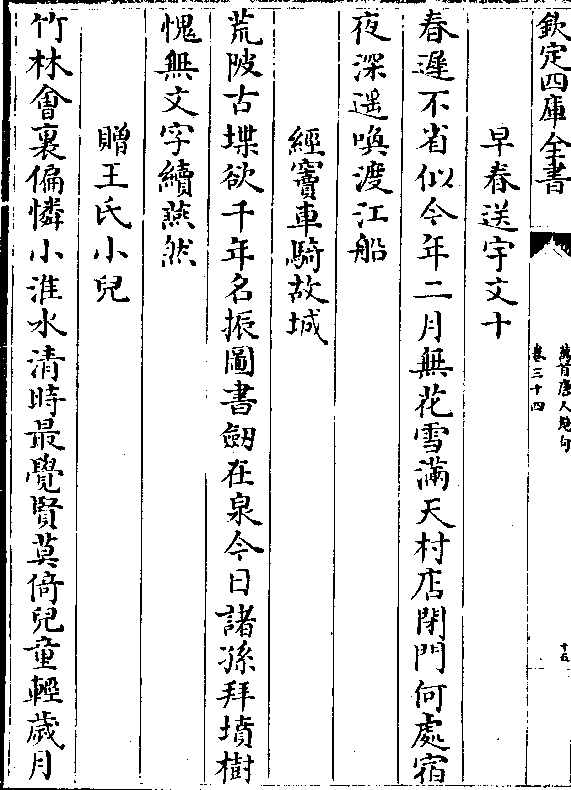 欽定四庫全書
萬首唐人絶句
卷三十四
十五
早春送宇文十
春遲不省似今年二月無花雪滿天村店閉門何處宿
夜深遥喚渡江船
經竇車騎故城
荒陂古堞欲千年名振圖書劒在泉今日諸孫拜墳樹
愧無文字續燕然
贈王氏小兒
竹林㑹裏偏憐小淮水清時最覺賢莫倚兒童輕歲月